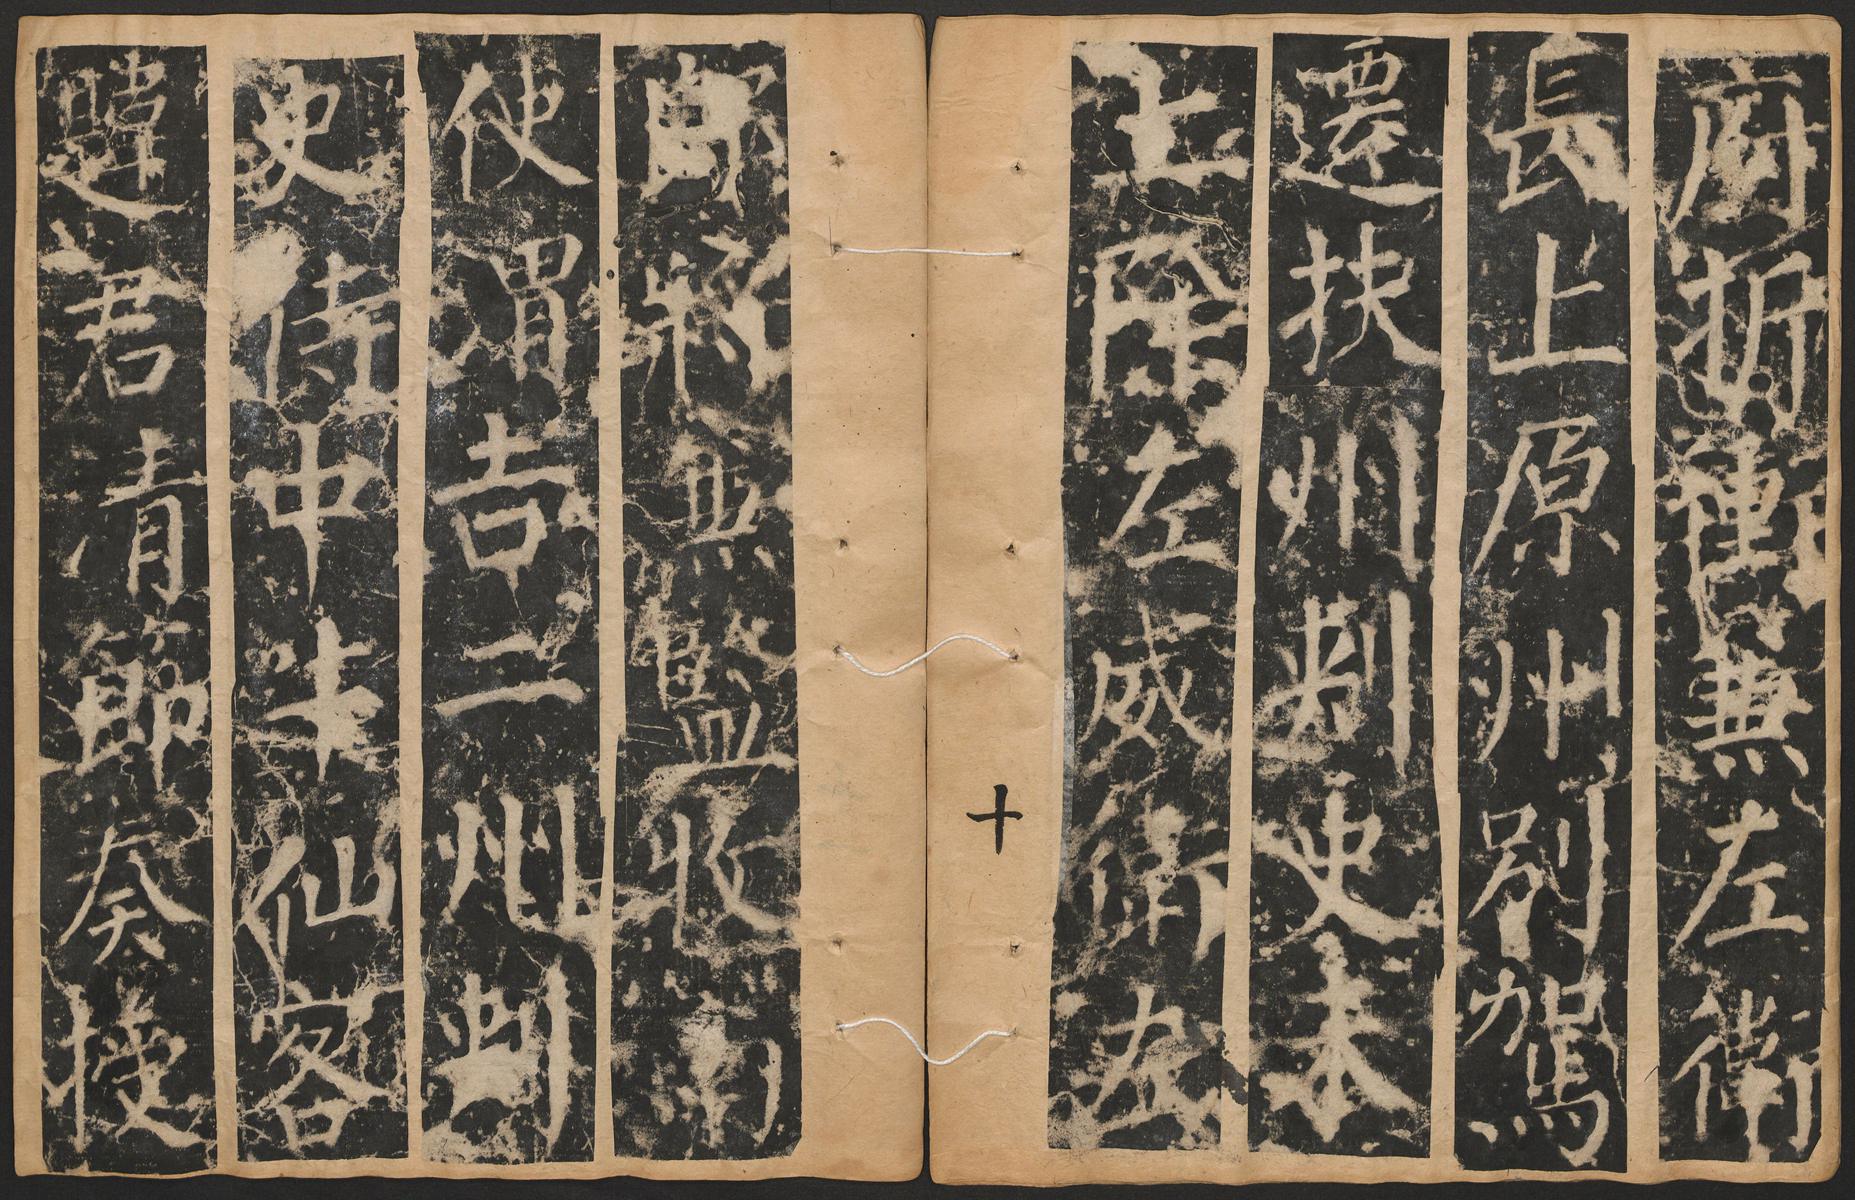 府折衝兼左衛
長上原州別駕
遷扶州刺史未
上除左威衛左
十
郎將兼監牧南
使渭吉二州刺
史侍中牛仙客
韙君清節奏授